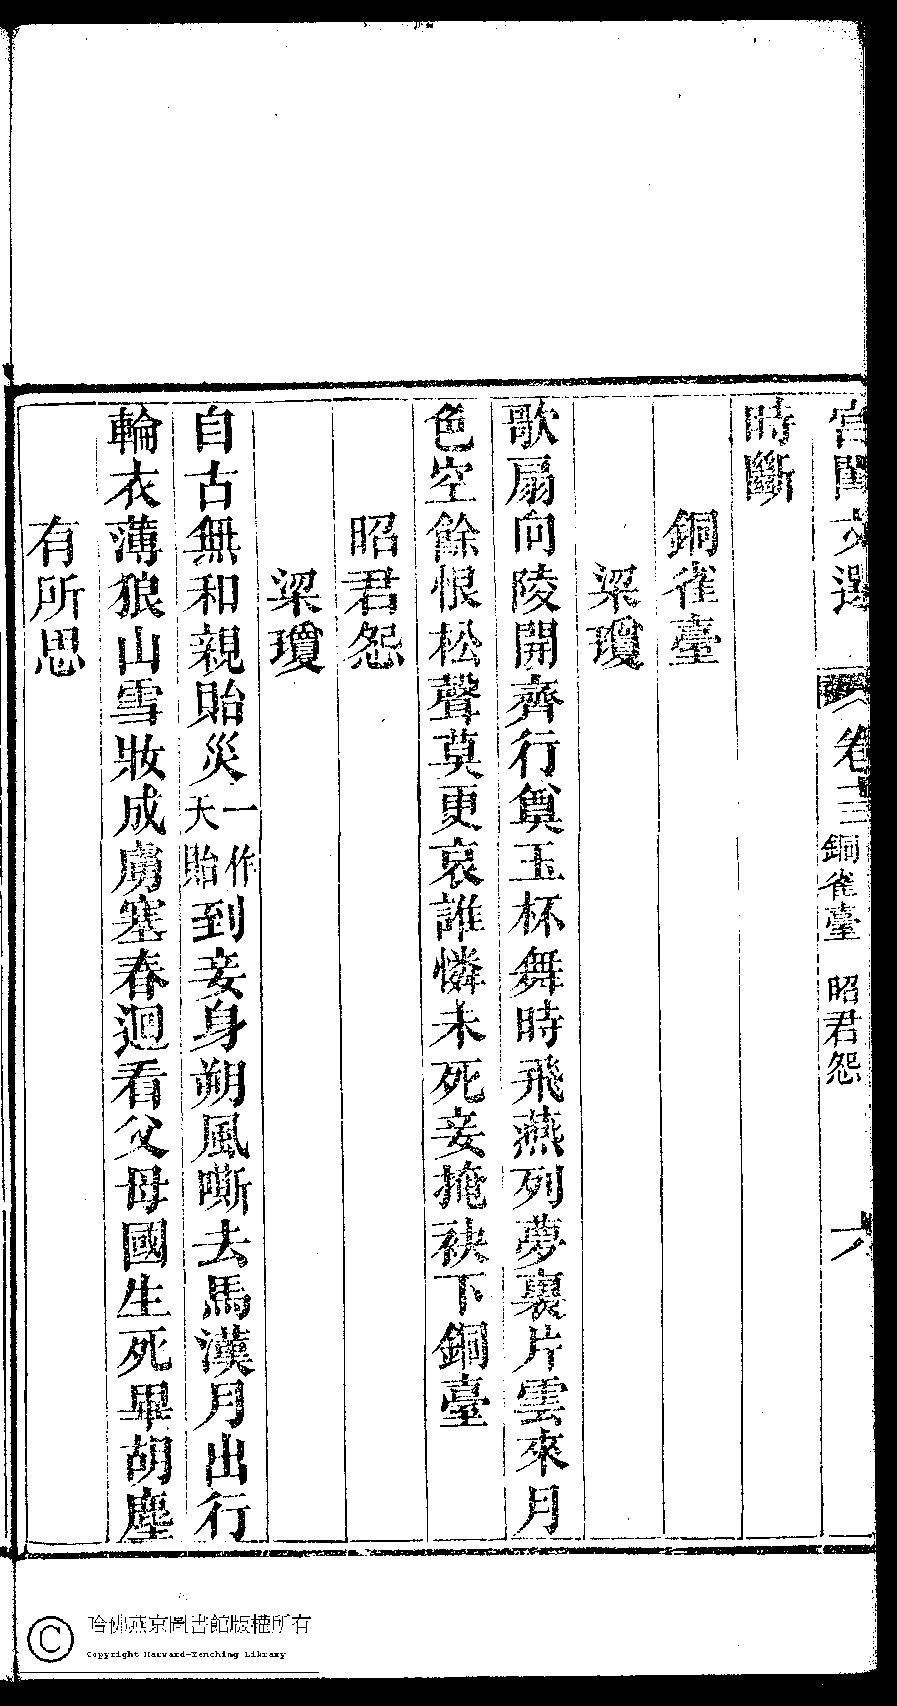 宮閨文選 卷十三 銅雀臺 昭君怨 六
時斷
銅雀臺
梁瓊
歌扇向陵開齊行奠玉杯舞時飛燕列夢裏片雲來月
色空餘恨松聲莫更哀誰憐未死妾掩袂下銅臺
昭君怨
梁瓊
自古無和親貽災一作天貽到妾身朔風嘶去馬漢月出行
輪衣薄狼山雪妝成虜塞春迴看父母國生死畢胡塵
有所思
哈佛燕京圖書館版權所有
Copyright Harvard-Yenching Library